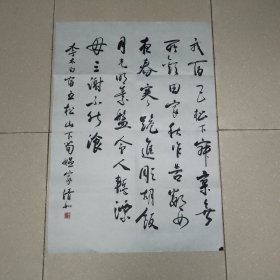 我宿五松下寂寥無
所歡田家秋作苦鄰女
夜舂寒跪進彫胡飯
月光明素盤令人慙漂
母三謝不能飡
李太白宿五松山下荀媪家